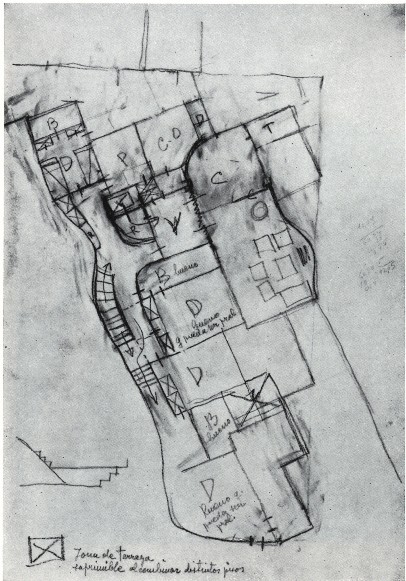 B
D
P
C.D
T
C
B bueno
D
Bueno
q. pueda ser pral
D
B
bueno
D
Bueno q.
pueda ser
pral
Zona de terraza
suprimible al combinar distintos pisos